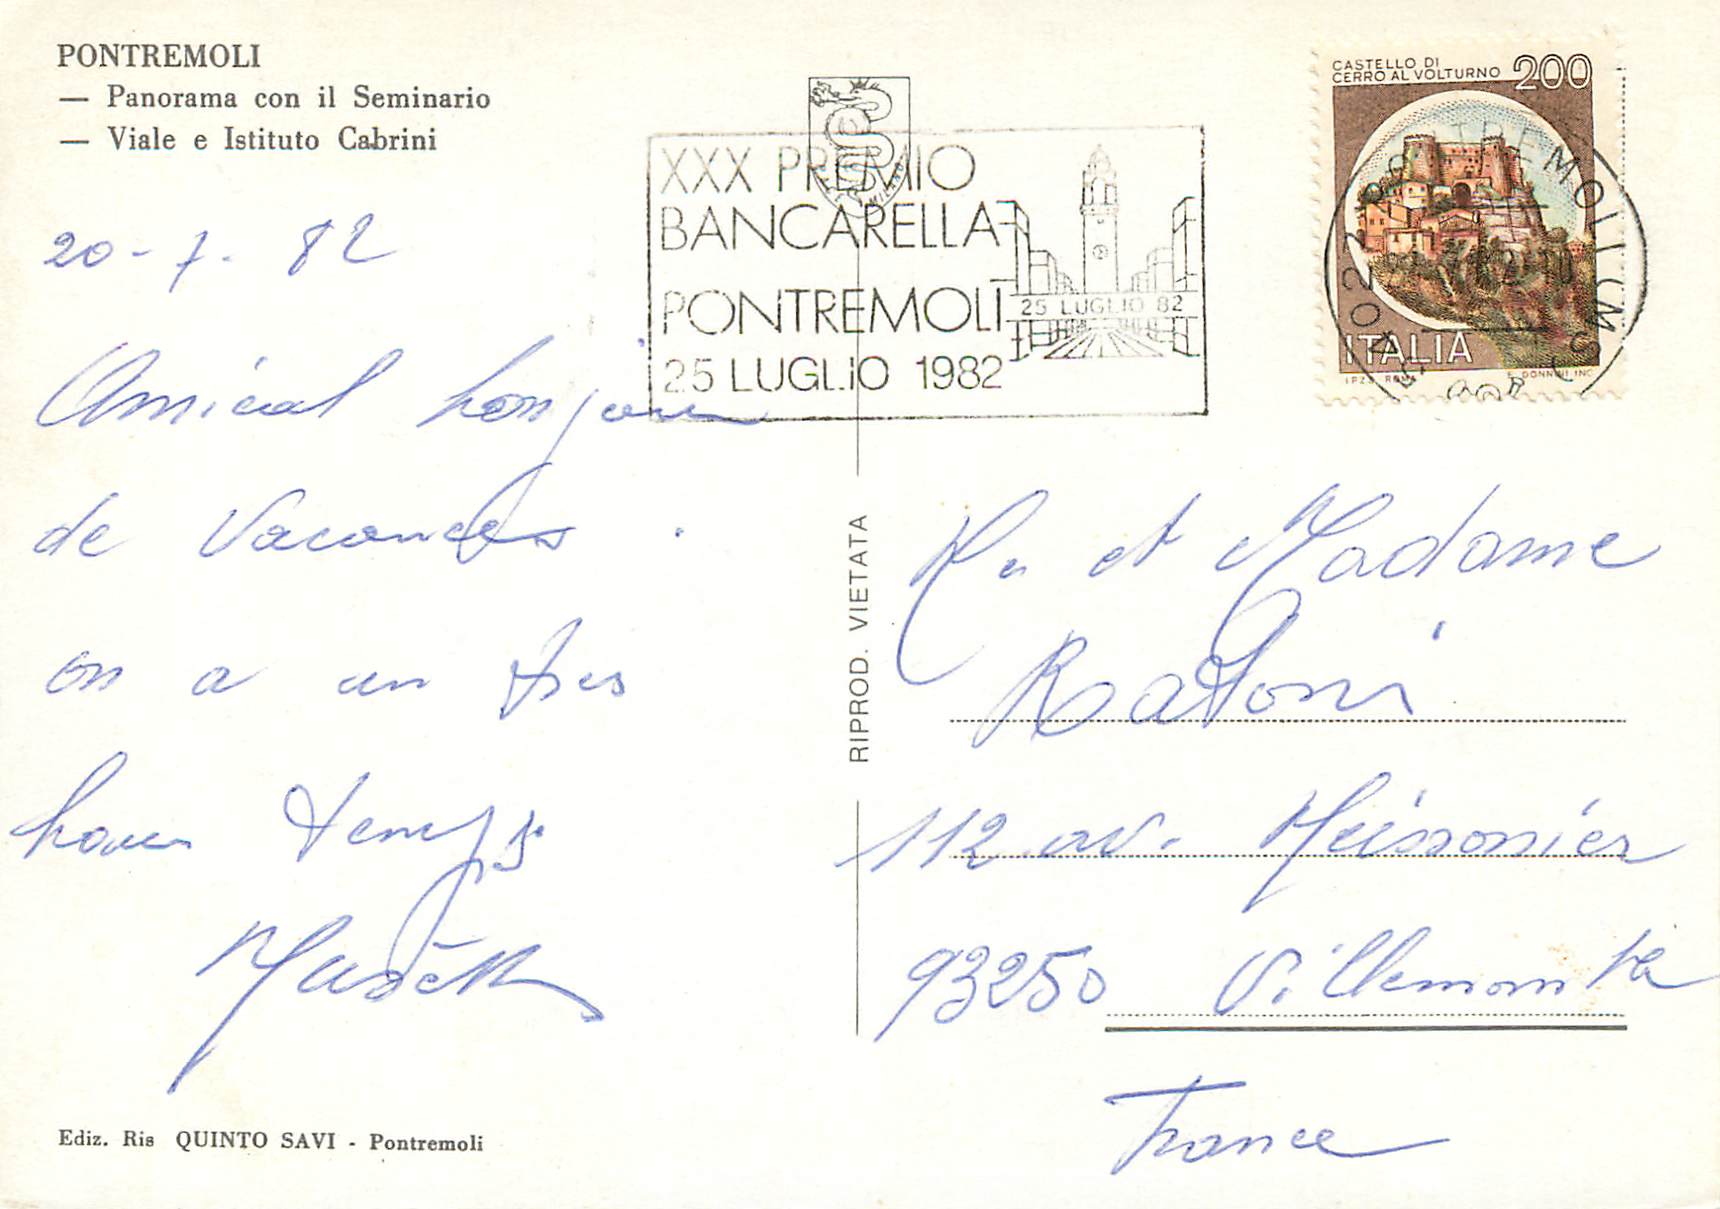 PONTREMOLI
— Panorama con il Seminario
— Viale e Istituto Cabrini
20-7-82
Amical bonjour
de Vacances.
on a un tres
bon temps
XXX PREMIO
BANCARELLA
PONTREMOLI
25 LUGLIO 1982
25 LUGLIO 82
MILANO
CASTELLO DI
CERRO AL VOLTURNO 200
ITALIA
I.P.Z.S. ROMA E. DONNINI INC.
PONTREMOLI
RIPROD. VIETATA
Mr et Madame
Ratoni
112 av. Meissonier
93250 Villemomble
France
Ediz. Ris QUINTO SAVI - Pontremoli